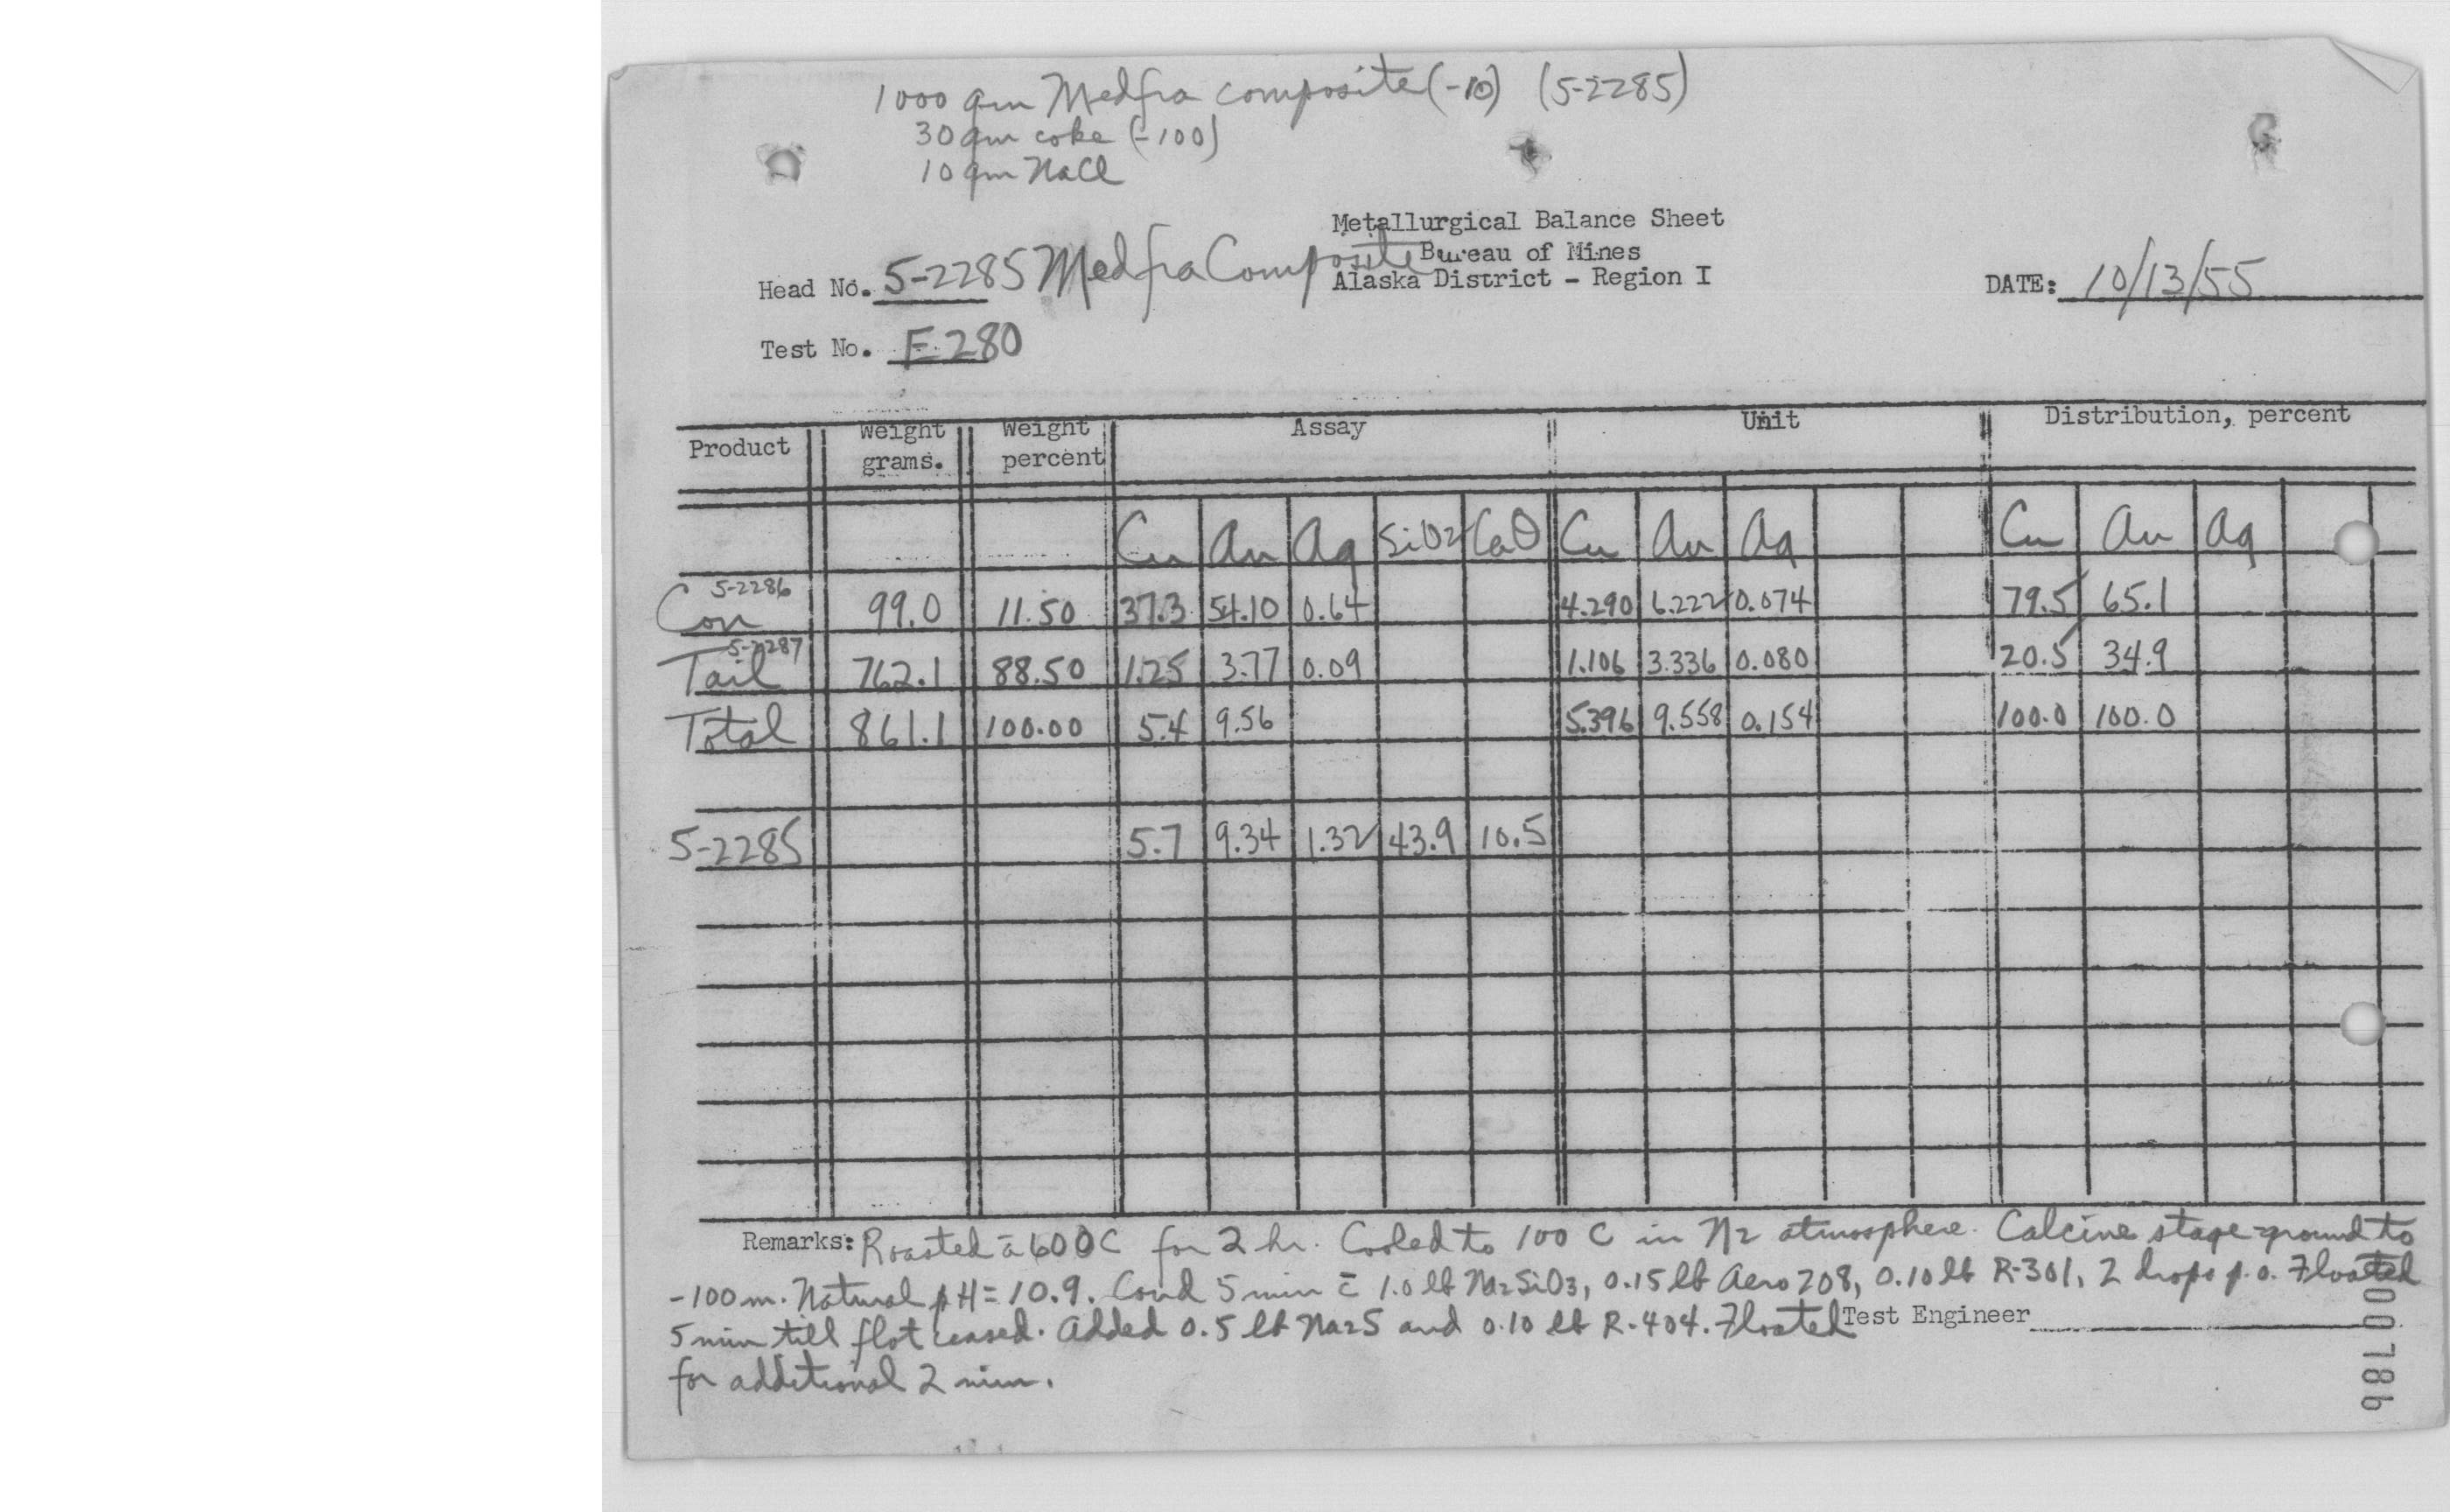 1000 gm Medfra composite (-10) (5-2285)
30 gm coke (-100)
10 gm NaCl
Metallurgical Balance Sheet
Bureau of Mines
Alaska District - Region I
Head No. 5-2285 Medfra Composite
DATE: 10/13/55
Test No. F 280
Product Weight grams. Weight percent Assay Unit Distribution, percent
Cu Au Ag SiO2 CaO Cu Au Ag Cu Au Ag
Con 5-2286 99.0 11.50 37.3 54.10 0.64 4.290 6.222 0.074 79.5 65.1
Tail 5-2287 762.1 88.50 1.25 3.77 0.09 1.106 3.336 0.080 20.5 34.9
Total 861.1 100.00 5.4 9.56 5.396 9.558 0.154 100.0 100.0
5-2285 5.7 9.34 1.32 43.9 10.5
Remarks: Roasted ā 600 C for 2 hr. Cooled to 100 C in N2 atmosphere. Calcine stage-ground to
-100 m. Natural pH = 10.9. Cond 5 min c̄ 1.0 lb Na2SiO3, 0.15 lb Aero 208, 0.10 lb R-301, 2 drops p.o. Floated
5 min till flot ceased. Added 0.5 lb Na2S and 0.10 lb R-404. Floated
for additional 2 min.
Test Engineer
00786